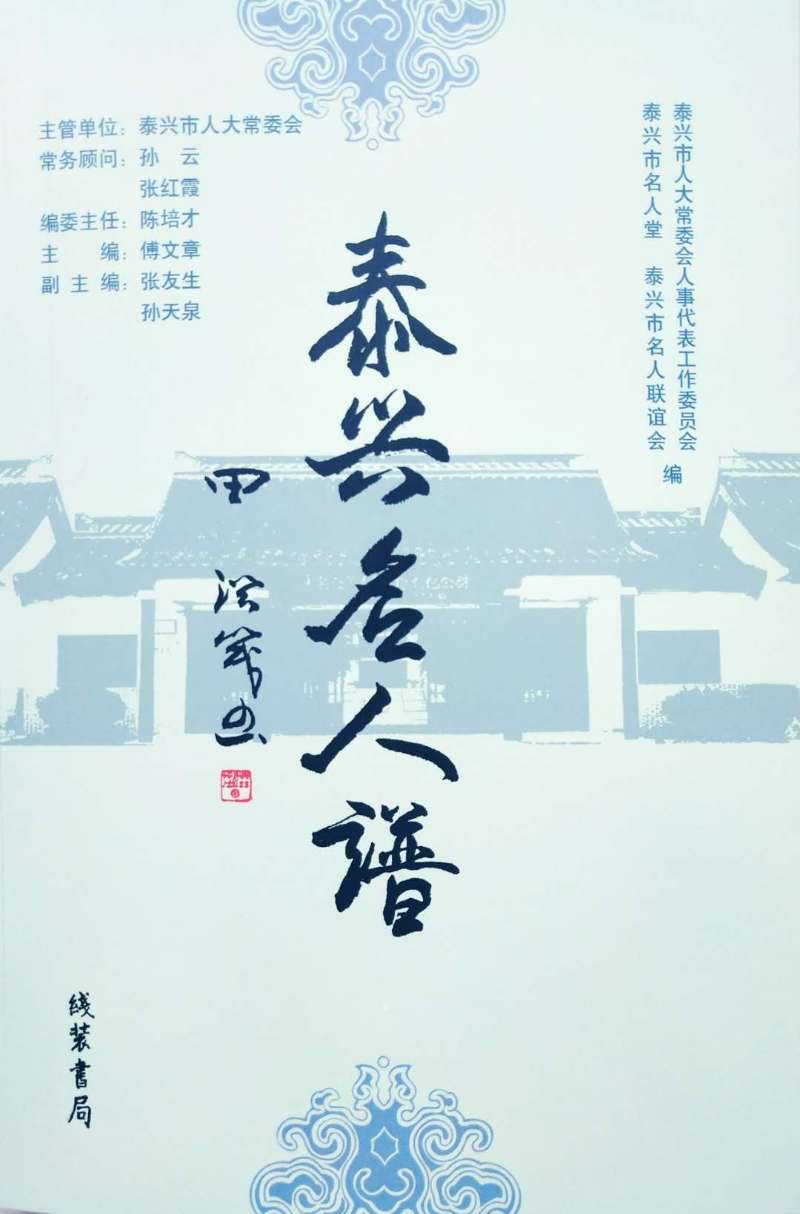 主管单位：泰兴市人大常委会
常务顾问：孙　云
张红霞
编委主任：陈培才
主　　编：傅文章
副 主 编：张友生
孙天泉
泰兴市人大常委会人事代表工作委员会
泰兴市名人堂　泰兴市名人联谊会
编
泰兴名人谱
田
线装书局